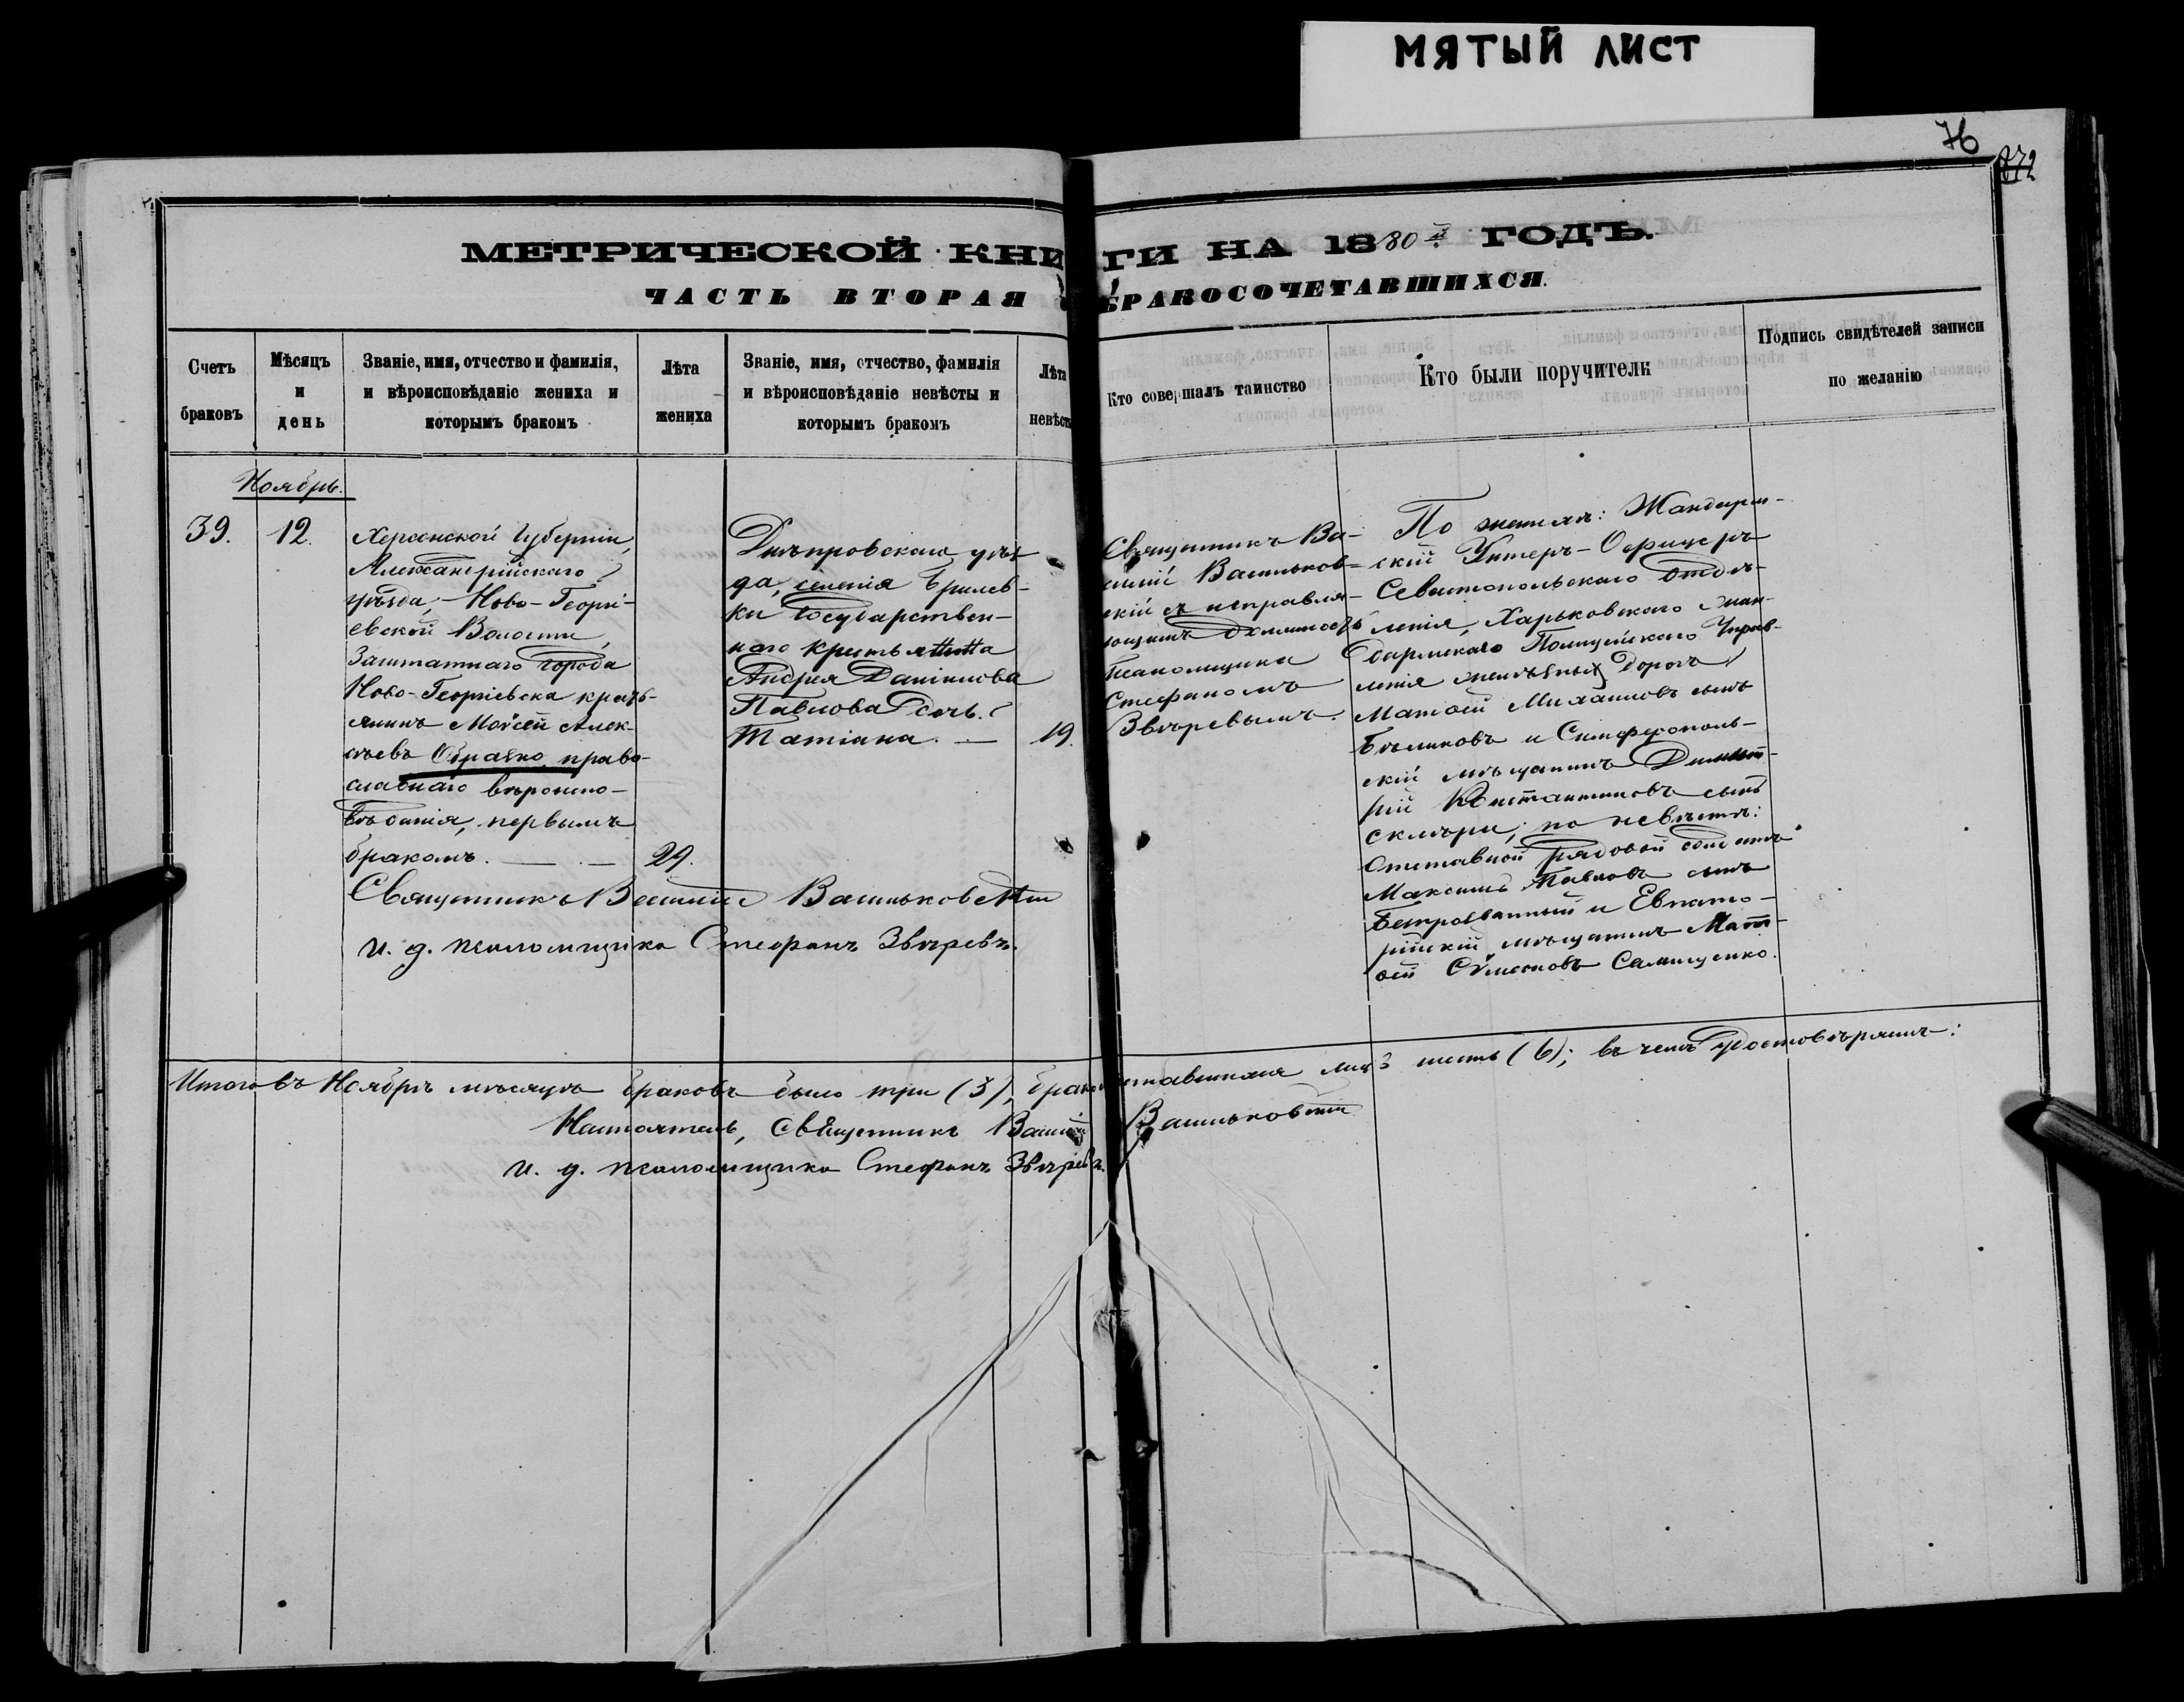 МЯТЫЙ ЛИСТ
76
872
МЕТРИЧЕСКОЙ КНИГИ НА 1880й ГОДЪ.
ЧАСТЬ ВТОРАЯ О БРАКОСОЧЕТАВШИХСЯ.
Счетъ браковъ
Мѣсяцъ и день
Званіе, имя, отчество и фамилія,
и вѣроисповѣданіе жениха и
которымъ бракомъ
Лѣта жениха
Званіе, имя, отчество, фамилія
и вѣроисповѣданіе невѣсты и
которымъ бракомъ
Лѣта невѣсты
Кто совершалъ таинство
Кто были поручители
Подпись свидѣтелей записи
по желанію
Ноябрь.
39.
12.
Херсонской Губерніи,
Александрійскаго
уѣзда, Ново-Георгі-
евской Волости,
Заштатнаго города
Ново-Георгіевска кресть-
янинъ Моѵсей Алек-
сѣевъ Образко, право-
славнаго вѣроиспо-
вѣданія, первымъ
бракомъ.
29.
Днѣпровскаго уѣз-
да, селенія Брилев-
ки Государствен-
наго крестьянина
Андрея Даніилова
Павлова дочь
Татіана.
19.
Священникъ Ва-
силій Васильков-
скій съ исправля-
ющимъ должность
псаломщика
Стефаномъ
Звѣревымъ.
По женихѣ: Жандарм-
скій Унтеръ-Офицеръ
Севастопольскаго Отдѣ-
ленія, Харьковскаго Жан-
дармскаго Полицейскаго Управ-
ленія желѣзныхъ дорогъ
Матѳей Михаиловъ сынъ
Бѣликовъ и Симферополь-
скій мѣщанинъ Димит-
рій Константиновъ сынъ
по невѣстѣ:
Отставной рядовой солдатъ
Максимъ Павловъ сынъ
и Евпато-
рійскій мѣщанинъ Мат-
ѳей Сѵмеоновъ
Священникъ Василій Васильковскій
и. д. псаломщика Стефанъ Звѣревъ.
Итого въ Ноябрѣ мѣсяцѣ браковъ было три (3), лицъ шесть (6); въ чемъ удостовѣряемъ:
Настоятель, Священникъ Василій Васильковскій
и. д. псаломщика Стефанъ Звѣревъ.